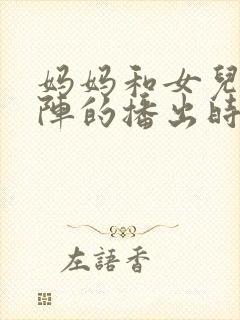 妈妈和女兒
陣的播出時
左語香